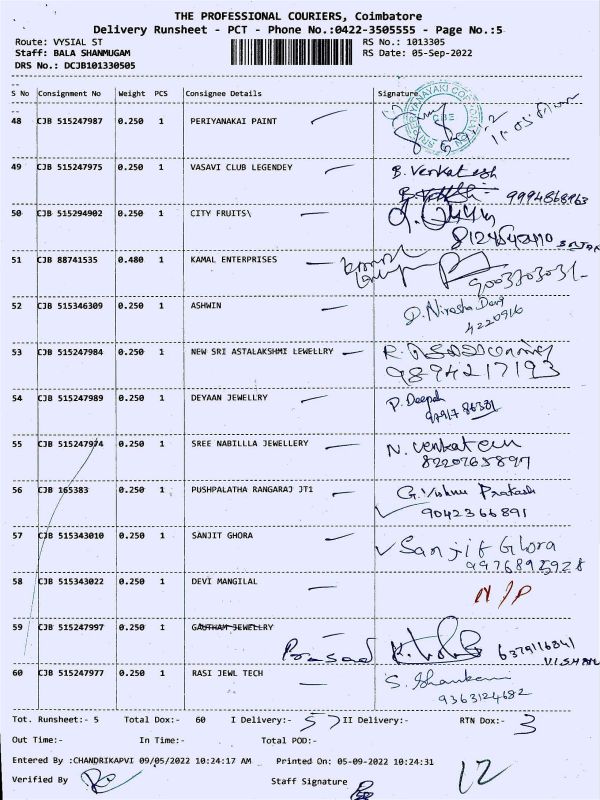 THE PROFESSIONAL COURIERS, Coimbatore
Delivery Runsheet - PCT - Phone No.:0422-3505555 - Page No.:5
Route: VYSIAL ST RS No.: 1013305
Staff: BALA SHANMUGAM RS Date: 05-Sep-2022
DRS No.: DCJB101330505
S No Consignment No Weight PCS Consignee Details Signature
48 CJB 515247987 0.250 1 PERIYANAKAI PAINT
49 CJB 515247975 0.250 1 VASAVI CLUB LEGENDEY B. Venkatesh
9994868963
50 CJB 515294902 0.250 1 CITY FRUITS\
8124542410
51 CJB 88741535 0.480 1 KAMAL ENTERPRISES
9003703031-
52 CJB 515346309 0.250 1 ASHWIN D. Nirosha Devi
4220916
53 CJB 515247984 0.250 1 NEW SRI ASTALAKSHMI LEWELLRY
9894217193
54 CJB 515247989 0.250 1 DEYAAN JEWELLRY P. Deepak
97917 86381
55 CJB 515247974 0.250 1 SREE NABILLLA JEWELLERY N. Venkatesh
8220765897
56 CJB 165383 0.250 1 PUSHPALATHA RANGARAJ JT1 G. Vishnu Prakash
9042366891
57 CJB 515343010 0.250 1 SANJIT GHORA Sanjit Ghora
9976895928
58 CJB 515343022 0.250 1 DEVI MANGILAL N/P
59 CJB 515247997 0.250 1 GAUTHAM JEWELLRY
Prasad 6379116841
VISHAL
60 CJB 515247977 0.250 1 RASI JEWL TECH S. Shankar
9363124682
Tot. Runsheet:- 5 Total Dox:- 60 I Delivery:- 57 II Delivery:- RTN Dox:- 3
Out Time:- In Time:- Total POD:-
Entered By :CHANDRIKAPVI 09/05/2022 10:24:17 AM Printed On: 05-09-2022 10:24:31
Verified By Staff Signature 12